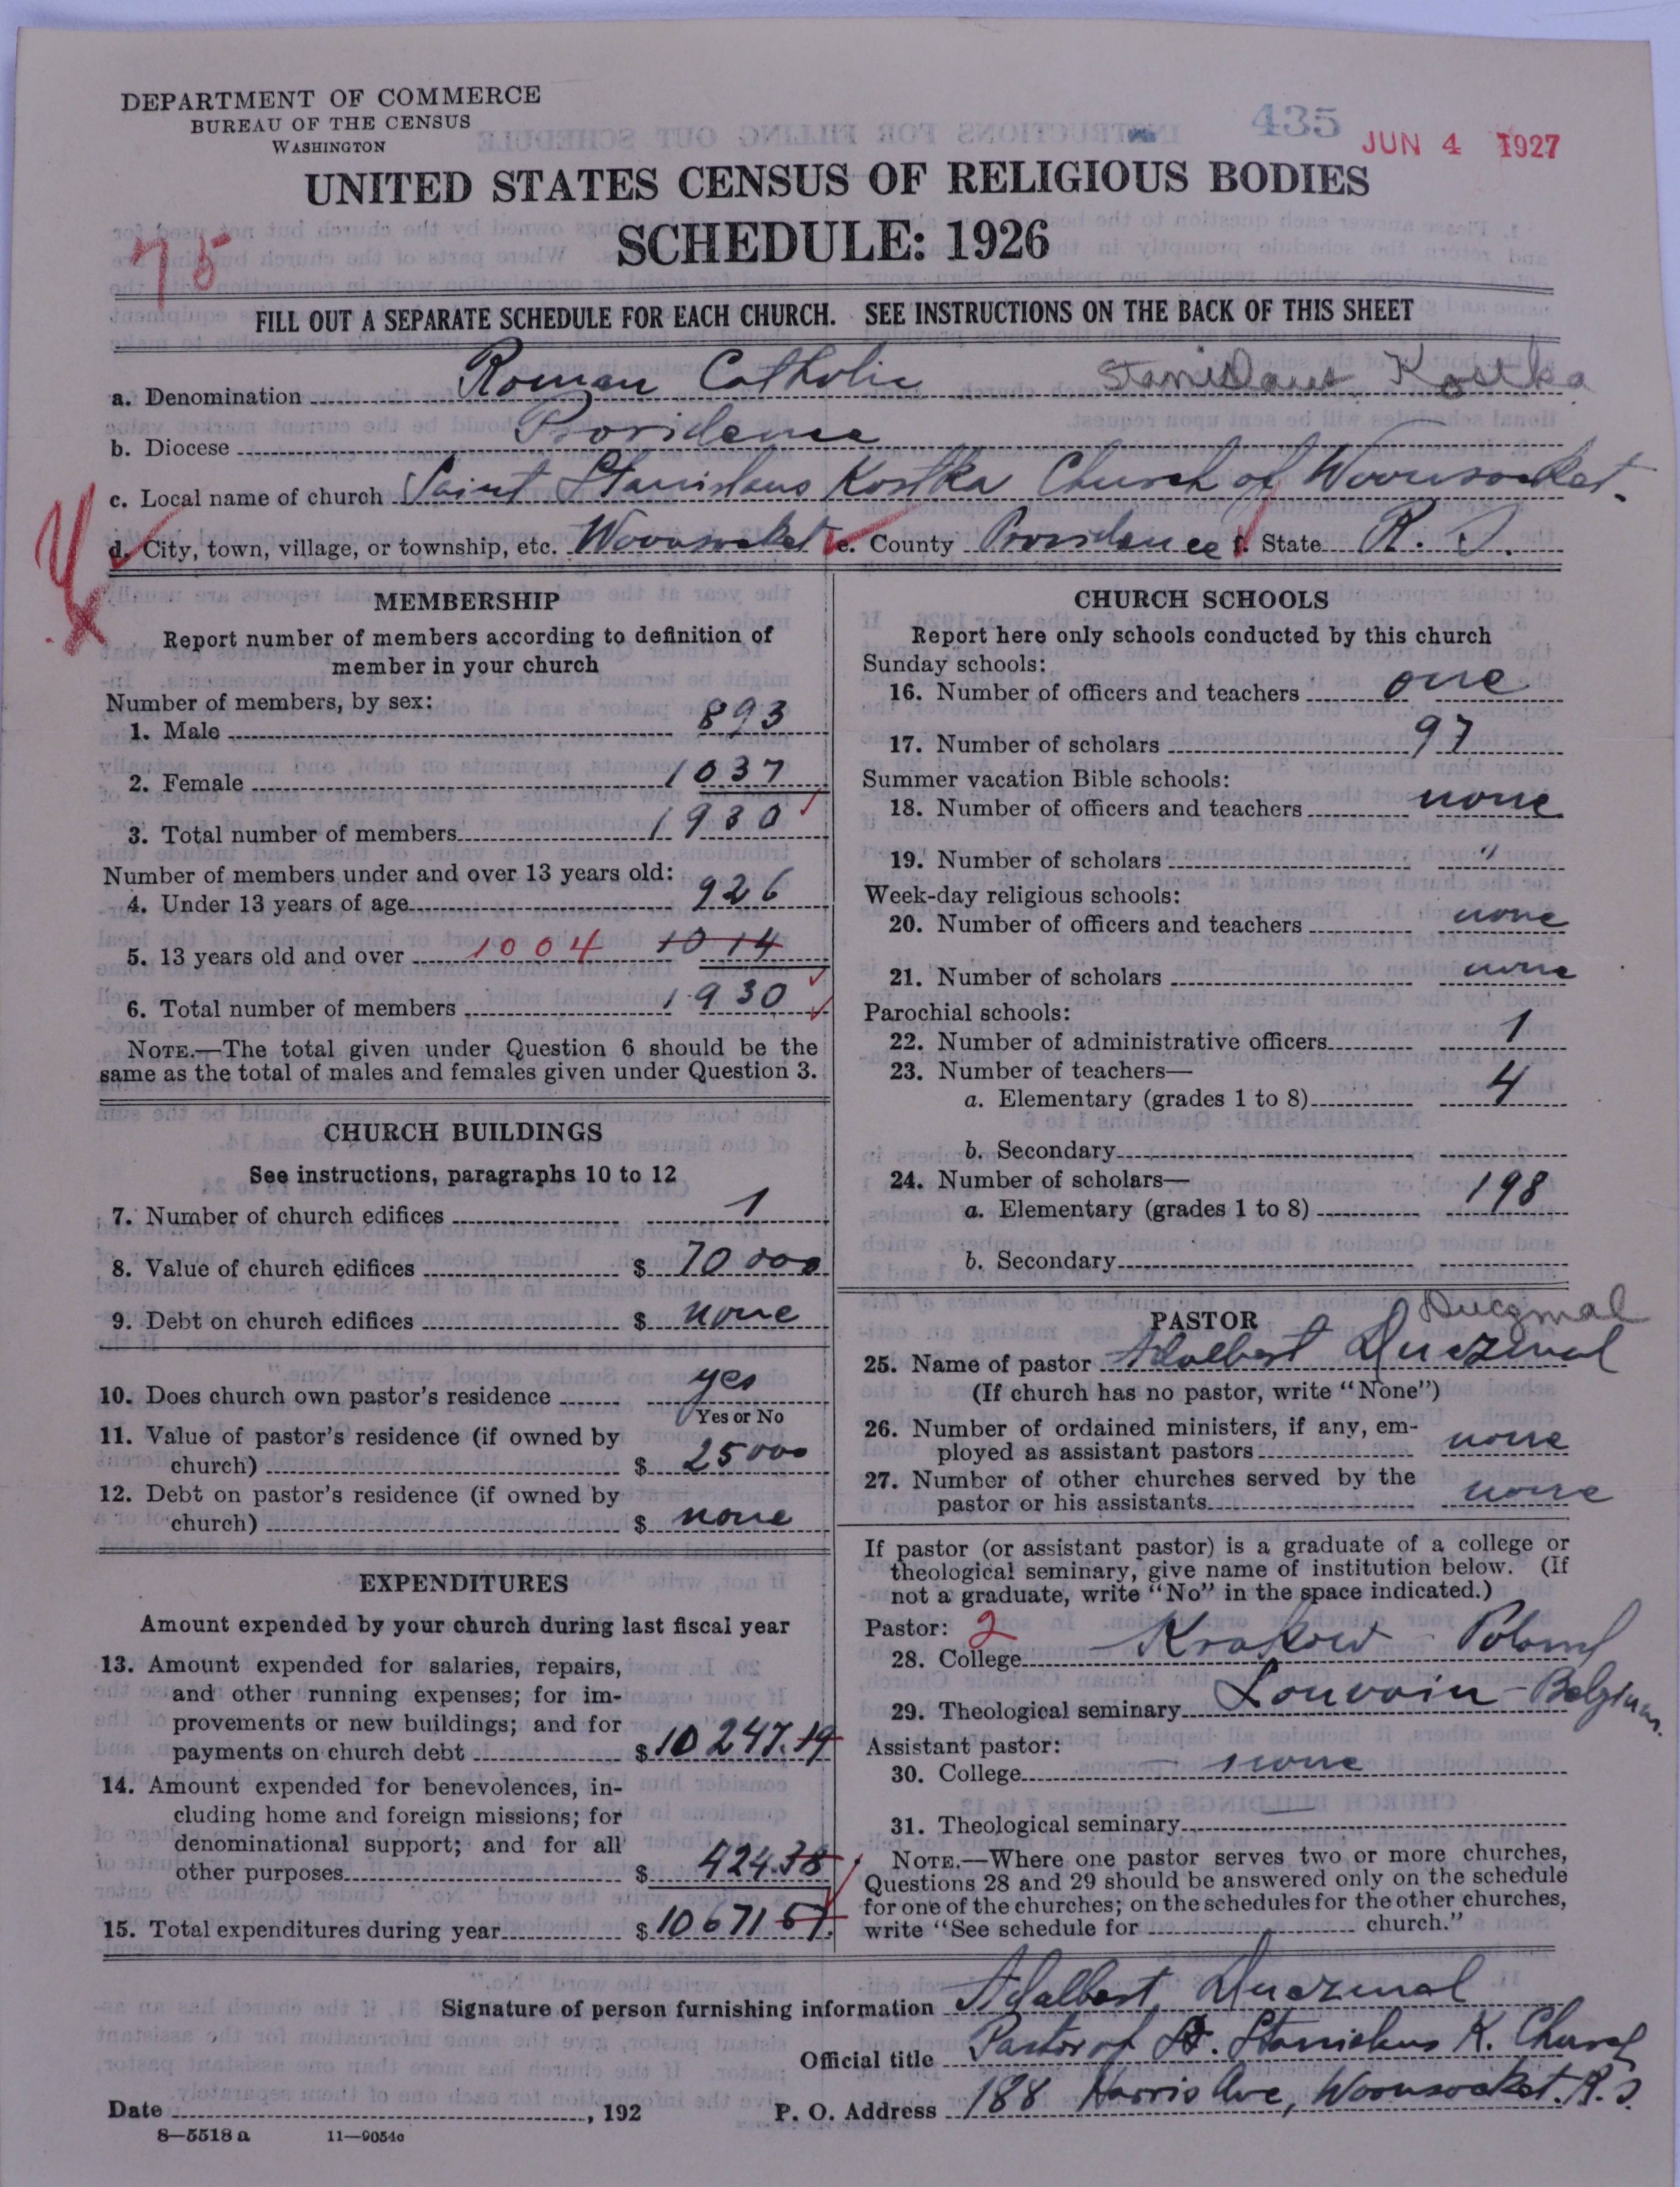 DEPARTMENT OF COMMERCE
BUREAU OF THE CENSUS
WASHINGTON
435
JUN 4 1927
UNITED STATES CENSUS OF RELIGIOUS BODIES
SCHEDULE: 1926
75
FILL OUT A SEPARATE SCHEDULE FOR EACH CHURCH. SEE INSTRUCTIONS ON THE BACK OF THIS SHEET
a. Denomination Roman Catholic Stanislaus Kostka
b. Diocese Providence
c. Local name of church Saint Stanislaus Kostka Church of Woonsocket.
d. City, town, village, or township, etc. Woonsocket e. County Providence f. State R. I.
MEMBERSHIP
Report number of members according to definition of
member in your church
Number of members, by sex:
1. Male 893
2. Female 1037
3. Total number of members 1930
Number of members under and over 13 years old:
4. Under 13 years of age 926
5. 13 years old and over 1004 1014
6. Total number of members 1930
NOTE.—The total given under Question 6 should be the
same as the total of males and females given under Question 3.
CHURCH BUILDINGS
See instructions, paragraphs 10 to 12
7. Number of church edifices 1
8. Value of church edifices $ 70 000
9. Debt on church edifices $ none
10. Does church own pastor's residence yes
Yes or No
11. Value of pastor's residence (if owned by
church) $ 25 000
12. Debt on pastor's residence (if owned by
church) $ none
EXPENDITURES
Amount expended by your church during last fiscal year
13. Amount expended for salaries, repairs,
and other running expenses; for im-
provements or new buildings; and for
payments on church debt $ 10 247.19
14. Amount expended for benevolences, in-
cluding home and foreign missions; for
denominational support; and for all
other purposes $ 424.38
15. Total expenditures during year $ 10 671 57.
CHURCH SCHOOLS
Report here only schools conducted by this church
Sunday schools:
16. Number of officers and teachers one
17. Number of scholars 97
Summer vacation Bible schools:
18. Number of officers and teachers none
19. Number of scholars "
Week-day religious schools:
20. Number of officers and teachers none
21. Number of scholars none
Parochial schools:
22. Number of administrative officers 1
23. Number of teachers—
a. Elementary (grades 1 to 8) 4
b. Secondary
24. Number of scholars—
a. Elementary (grades 1 to 8) 198
b. Secondary
PASTOR Duczmal
25. Name of pastor Adalbert Duczmal
(If church has no pastor, write "None")
26. Number of ordained ministers, if any, em-
ployed as assistant pastors none
27. Number of other churches served by the
pastor or his assistants none
If pastor (or assistant pastor) is a graduate of a college or
theological seminary, give name of institution below. (If
not a graduate, write "No" in the space indicated.)
Pastor: 2
28. College Krakow - Poland
29. Theological seminary Louvain - Belgium.
Assistant pastor:
30. College none
31. Theological seminary
NOTE.—Where one pastor serves two or more churches,
Questions 28 and 29 should be answered only on the schedule
for one of the churches; on the schedules for the other churches,
write "See schedule for church."
Signature of person furnishing information Adalbert Duczmal
Official title Pastor of St. Stanislaus K. Church
Date , 192 P. O. Address 188 Harris Ave, Woonsocket. R. I.
8—5518 a 11—9054c